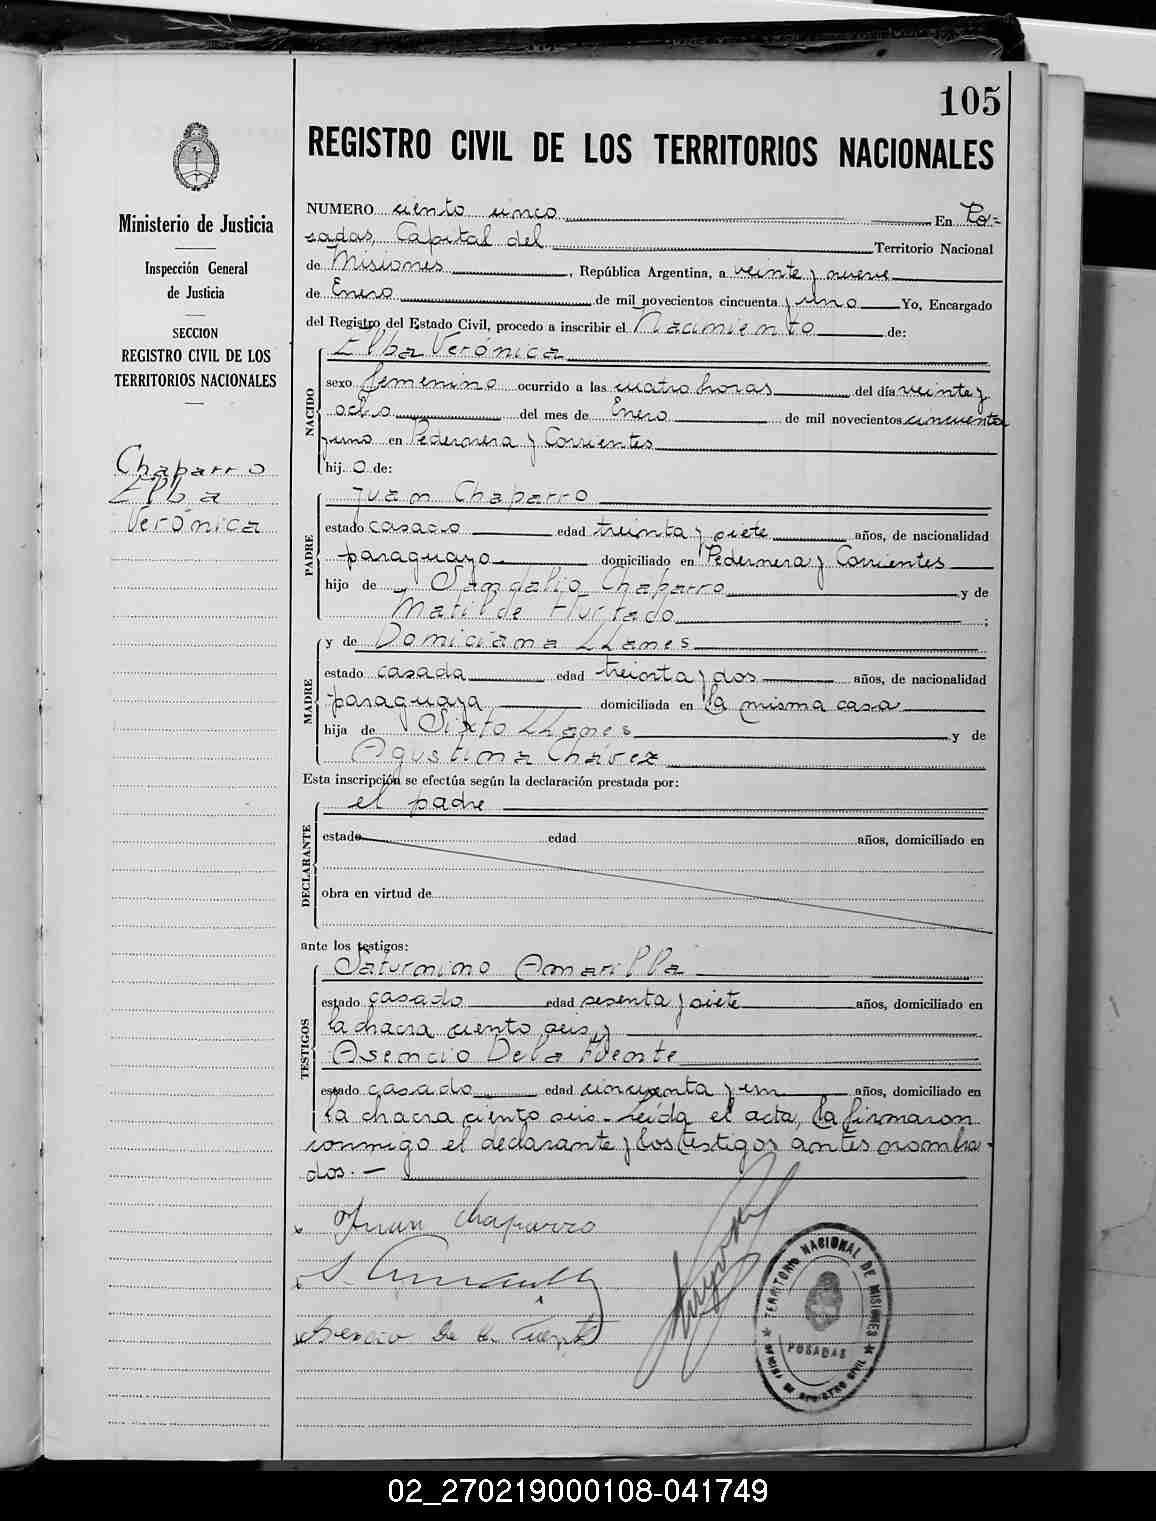 105
REGISTRO CIVIL DE LOS TERRITORIOS NACIONALES
Ministerio de Justicia
Inspección General
de Justicia
SECCION
REGISTRO CIVIL DE LOS
TERRITORIOS NACIONALES
Chaparro
Elba
Verónica
NUMERO ciento cinco En Po-
sadas, Capital del Territorio Nacional
de Misiones, República Argentina, a veinte y nueve
de Enero de mil novecientos cincuenta y uno Yo, Encargado
del Registro del Estado Civil, procedo a inscribir el Nacimiento de:
NACIDO
Elba Verónica
sexo femenino ocurrido a las cuatro horas del día veinte y
ocho del mes de Enero de mil novecientos cincuenta
y uno en Pedernera y Corrientes
hij o de:
PADRE
Juan Chaparro
estado casado edad treinta y siete años, de nacionalidad
paraguayo domiciliado en Pedernera y Corrientes
hijo de Sandalio Chaparro y de
Matilde Hurtado ;
MADRE
y de Domiciana Llanes
estado casada edad treinta y dos años, de nacionalidad
paraguaya domiciliada en la misma casa
hija de Sixto Llanes y de
Agustina Chávez
Esta inscripción se efectúa según la declaración prestada por:
DECLARANTE
el padre
estado edad años, domiciliado en
obra en virtud de
ante los testigos:
TESTIGOS
Saturnino Amarilla
estado casado edad sesenta y siete años, domiciliado en
la chacra ciento seis, y
Asencio De la Fuente
estado casado edad cincuenta y un años, domiciliado en
la chacra ciento seis.- Leída el acta, la firmaron
conmigo el declarante y los testigos antes nombra-
dos.-
x Juan Chaparro
x S. Amarilla
x Asencio De la Fuente
TERRITORIO NACIONAL DE MISIONES
POSADAS
OFICINA DE REGISTRO CIVIL
02_270219000108-041749